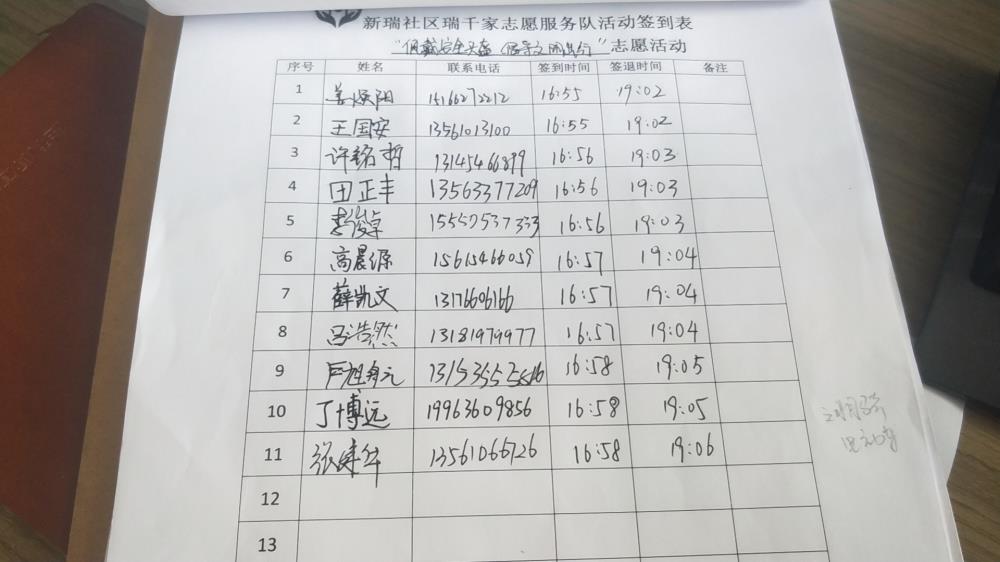 新瑞社区瑞千家志愿服务队活动签到表
“佩戴安全头盔 倡导文明出行”志愿活动
序号 姓名 联系电话 签到时间 签退时间 备注
1 姜焕阳 16:55 19:02
2 王国安 13561013100 16:55 19:02
3 许铭哲 13145466899 16:56 19:03
4 田正丰 13563377209 16:56 19:03
5 李俊卓 15557537333 16:56 19:03
6 高晨源 15615466059 16:57 19:04
7 薛凯文 13176606166 16:57 19:04
8 吕浩然 13181979977 16:57 19:04
9 16:58 19:05
10 丁博远 19963609856 16:58 19:05
11 张建华 13561066726 16:58 19:06
12
13